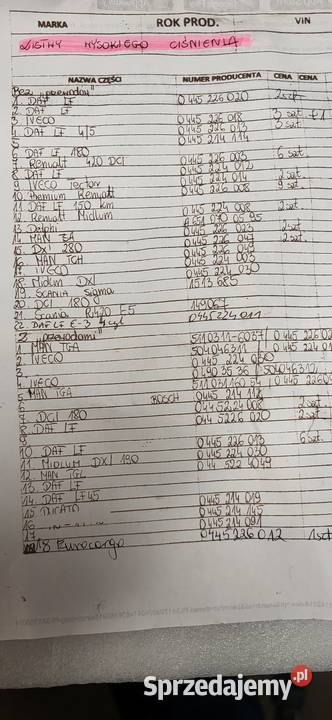 MARKA ROK PROD. VIN
LISTWY WYSOKIEGO CIŚNIENIA
NAZWA CZĘŚCI NUMER PRODUCENTA CENA CENA
Bez "przewodów"
1. DAF LF 0445 226 020 2szt
2. DAF LF
3. IVECO 0445 226 018 3 szt +1
4. DAF LF 45 0445 226 013 3szt
5 0445 214 114
6 DAF LF 180
7 Renault 420 DCI 0445 226 003 6 szt
8 DAF LF 0445 224 012
9 IVECO Tector 0445 224 014 2szt
10 Premium Renault 0445 226 008 9 szt
11 DAF LF 150 km
12 Renault Midlum 0445 224 008 2szt
13 Delphi A651 070 05 95
14 MAN EA 0445 226 023 2szt
15 DXI 280 0445 226 047 2szt
16 MAN TGH 0445 226 049
17 IVECO 0445 224 003
18 Midlum DXI 0445 224 030
19. SCANIA Sigma 1513 685
20 DCI 180
21 Scania R420 E5 149067
22. DAF LF E-3 4 cyl 0445224011
Z "przewodami"
1 MAN TGA 5110311-6037/ 0 445 226 0
2 IVECO 504046311 / 0 445 224 01
3. 0 445 224 030
4. IVECO 0490 35 36 / 504046312/
5 MAN TGA 51103116054 / 0 445 226 0
6 BOSCH 0445 214 112
7 DCI 180 0445224008 2szt
8. DAF LF 044 5226 020 2szt
9 6szt
10 DAF LF 0 445 226 013
11. MIDLUM DXI 190 0 445 224 030
12 MAN TGL 044 522 4049
13. DAF LF
14 DAF LF45 0 445 214 019
15 DUCATO 0 445 214 145
16 0 445 214 091
17.
18 Eurocargo 0445226012 1szt
Sprzedajemy.pl